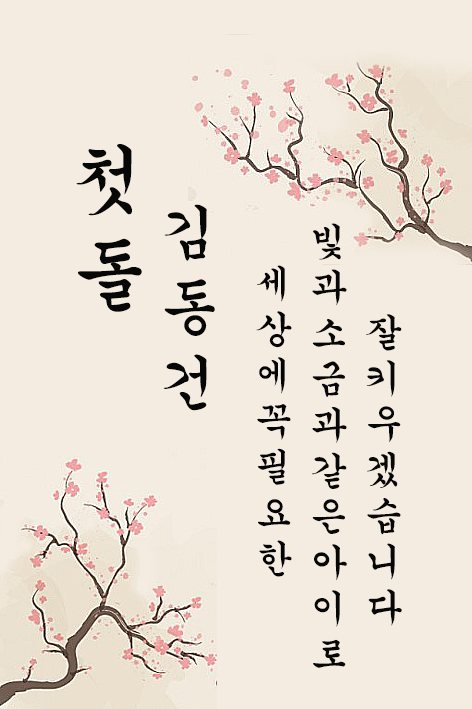 첫돌
김동건
세상에꼭필요한
빛과소금과같은아이로
잘키우겠습니다